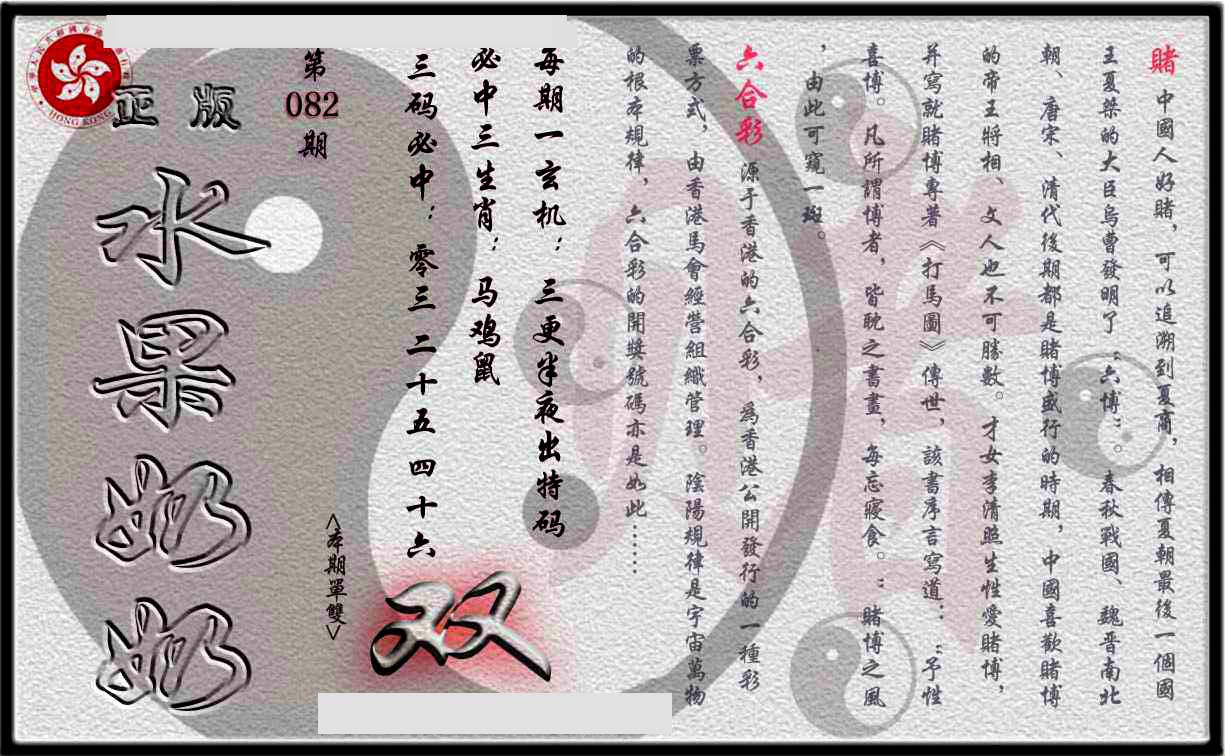 賭 中國人好賭，可以追溯到夏商，相傳夏朝最後一個國
王夏桀的大臣烏曹發明了“六博”。春秋戰國、魏晋南北
朝、唐宋、清代後期都是賭博盛行的時期，中國喜歡賭博
的帝王將相、文人也不可勝數。才女李清照生性愛賭博，
并寫就賭博專著《打馬圖》傳世，該書序言寫道：“予性
喜博。凡所謂博者，皆耽之書畫，每忘寢食。”賭博之風
，由此可窺一斑。
六合彩 源于香港的六合彩，為香港公開發行的一種彩
票方式，由香港馬會經營組織管理。陰陽規律是宇宙萬物
的根本規律，六合彩的開獎號碼亦是如此……
每期一玄机：三更半夜出特码
必中三生肖：马鸡鼠
三码必中：零三二十五四十六
双
<本期單雙>
第
082
期
正版
水果奶奶
HONG KONG